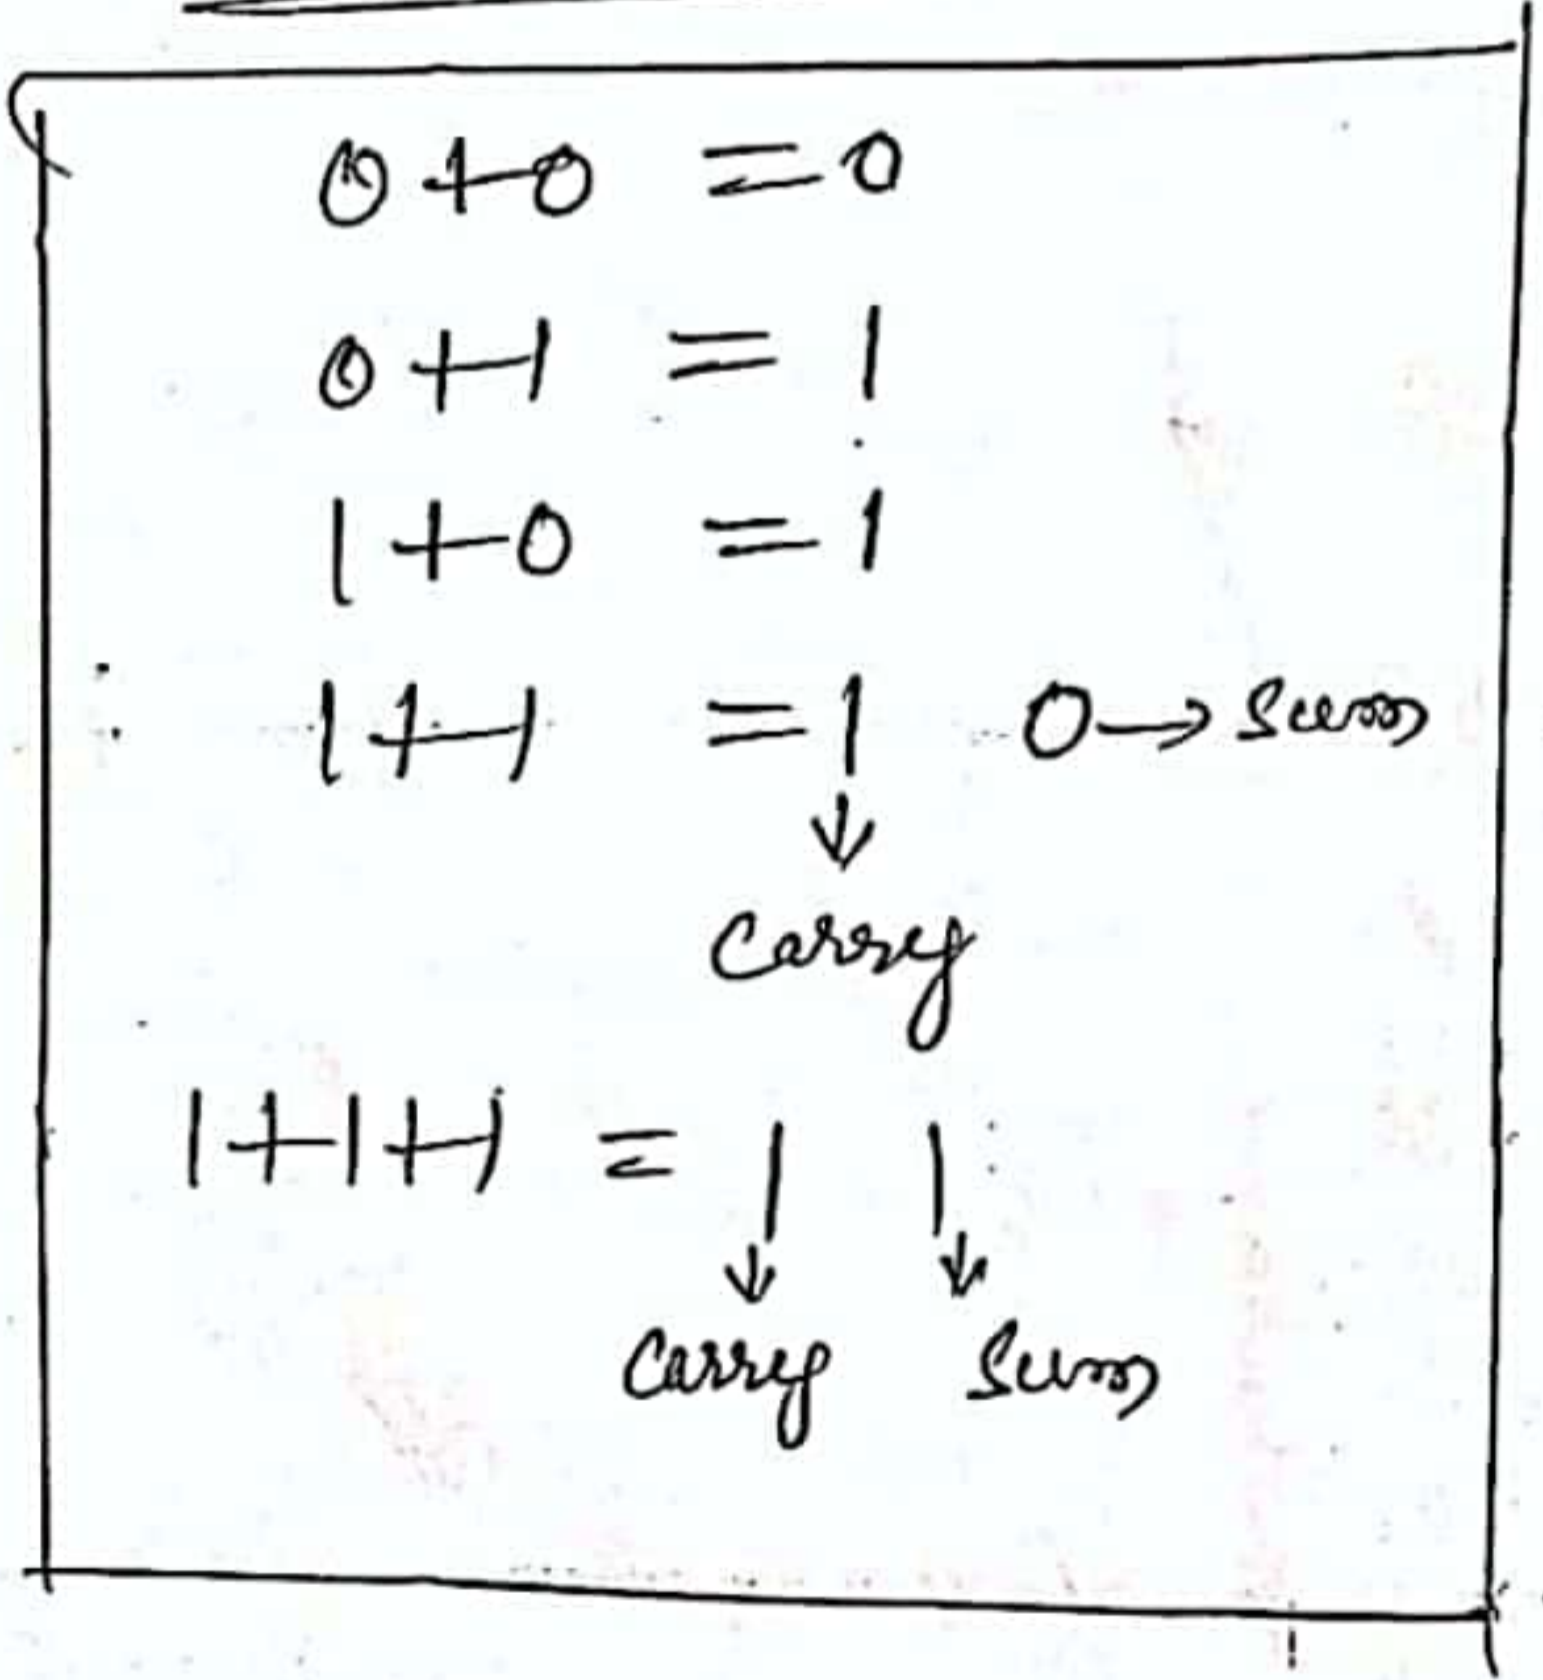 0+0 = 0
0+1 = 1
1+0 = 1
1+1 = 1 0→ Sum
↓
Carry
1+1+1 = 1 1
↓ ↓
Carry Sum